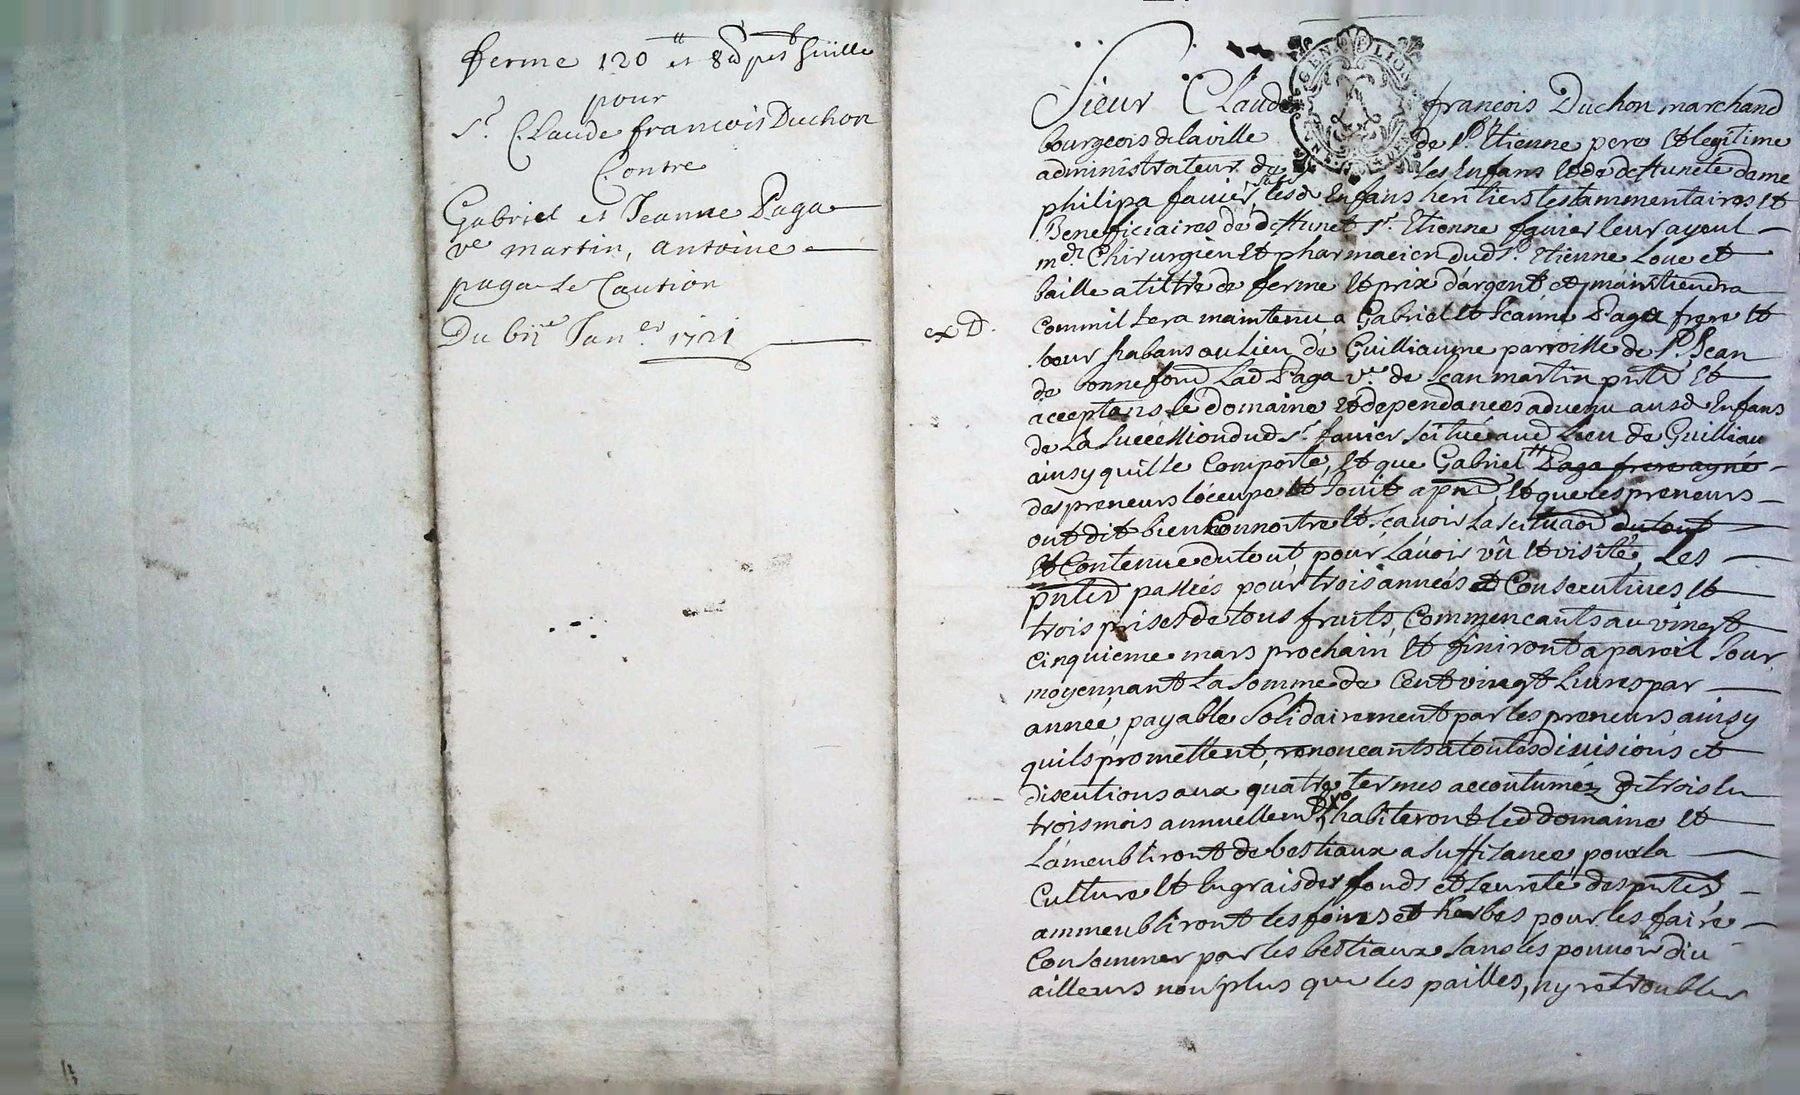 ferme 120 ᵗᵗ et 8 d pes b feuille
pour
Sr. Claude francois Duchon
Contre
Gabriel et Jeanne Paga
ve martin, antoine
paga Le Caution
Du 6me Janer. 1721
ex D.
Sieur Claude françois Duchon marchand
bourgeois de la ville de St. Etienne pere et legitime
administrateur de ses Enfans et de deffunete dame
philipa fauier, lesd Enfans heritiers testammentaires et
Beneficiaires de deffunet Sr. Etienne fauier leur ayeul
mdr Chirurgien et pharmacien dud St. Etienne Loue et
baille a tiltre de ferme et prix dargent et maintiendra
Comme il sera maintenu a Gabriel et Jeanne Paga frere et
sœur habans au Lieu de Guillianme parroisse de St. Jean
de bonnefond Lad Paga ve. de Jean martin pntd et
acceptans le domaine et dependances advenu ausd Enfans
de La Succession dud Sr. fauier scitué aud Lieu de Guilliau
ainsy quil se Comporte, et que Gabriel Paga frere ayné
des preneurs l'occupe et Jouit a pnd, et que les preneurs
ont dit bien Connoitre et scauoir La scituaon du tout
et Contenue du tout pour L'auoir vû et visité, Les
pntes passées pour trois années et Consecutives et
trois prises de tous fruits, Commencants au vingt
cinquieme mars prochain et finiront a pareil Jour
moyennant La Somme de Cent vingt Liures par
année, payable Solidairement par les preneurs ainsy
quils promettent, renoncants a toutes diuisions et
discutions aux quatre termes accoutuméz de trois en
trois mois annuellemt, habiteront led domaine et
L'ameubliront de bestiaux a suffisance pour la
Culture et Engrais des fonds et seureté des pntes
ammeubliront les foins et herbes pour les faire
Consommer par les bestiaux sans les pouuoir diu
ailleurs non plus que les pailles, ny retroubler